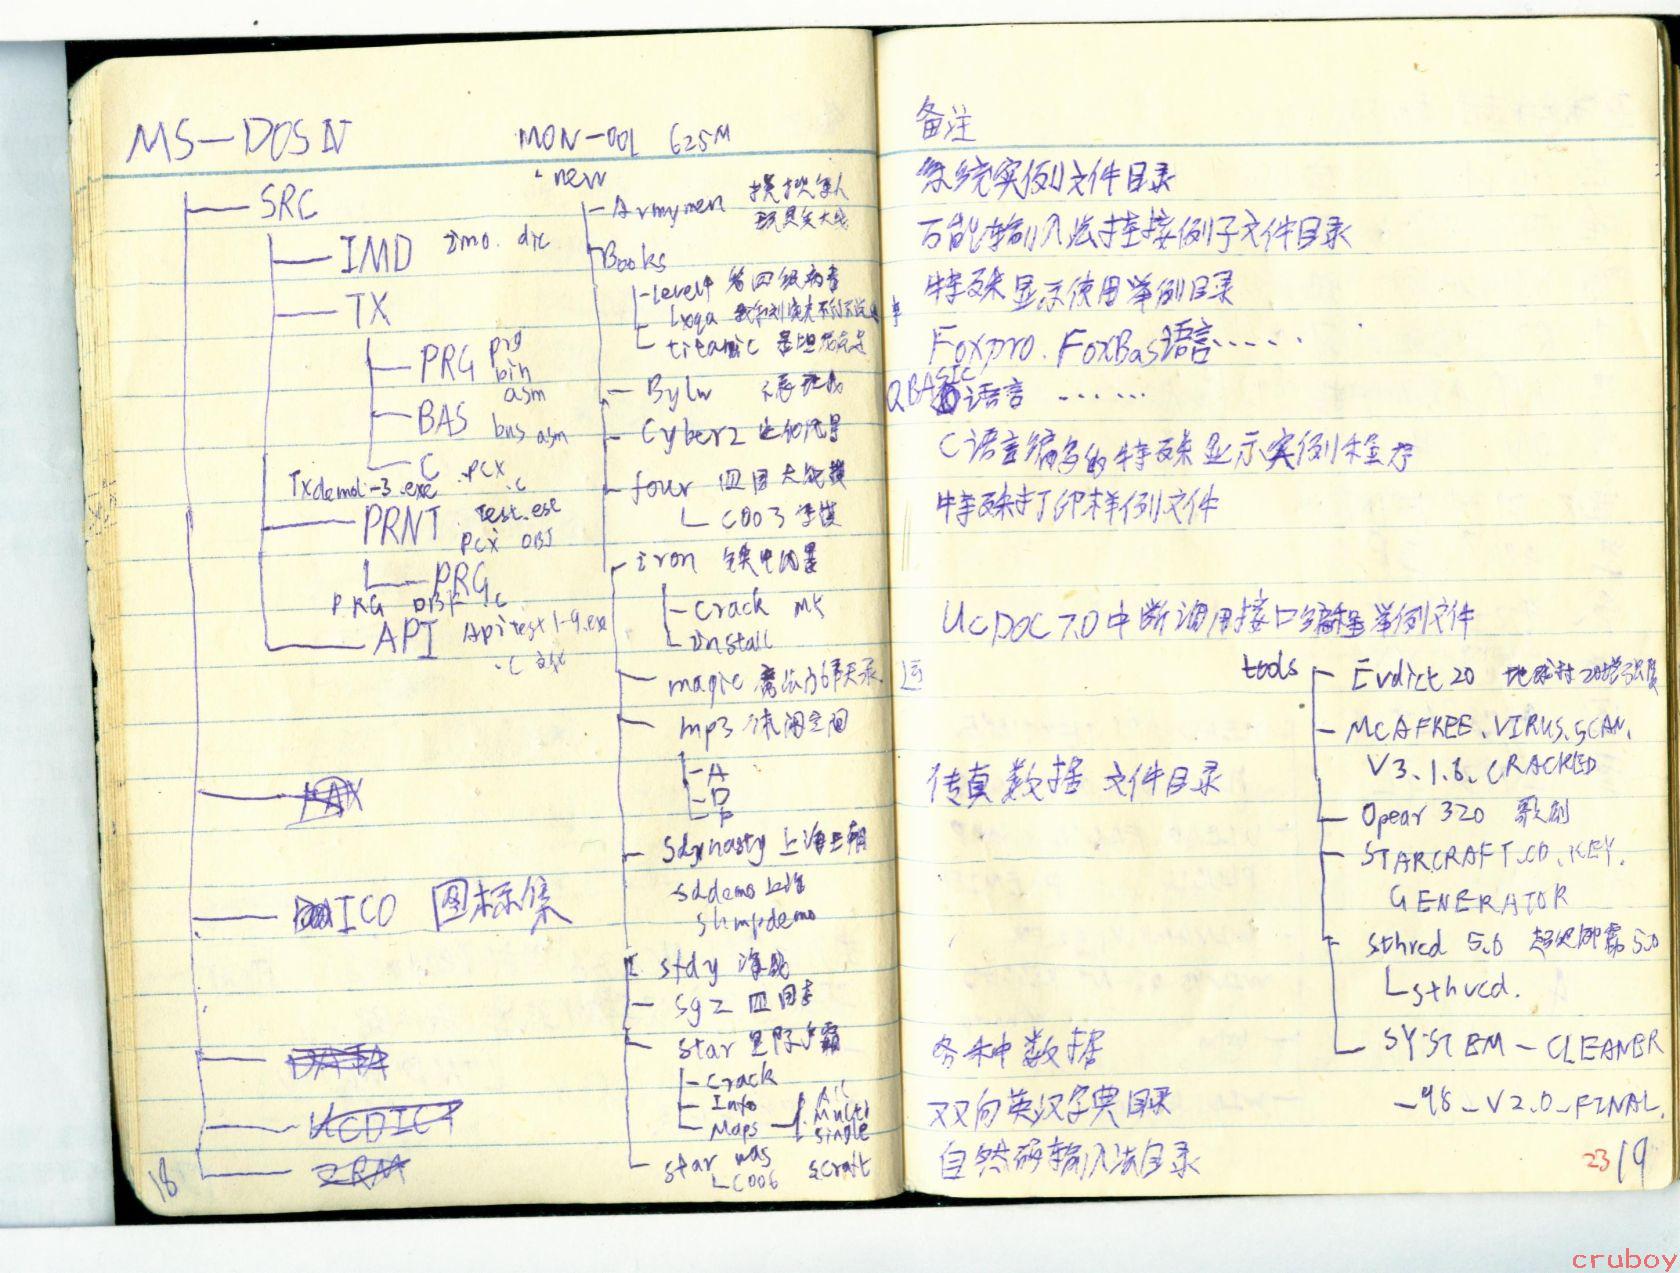 MS-DOS IV
SRC
IMD imo. dic
TX
PRG prg
bin
asm
BAS bas asm
C .pcx
.c
Txdemo1-3.exe
PRNT Test.exe
PCX OBJ
PRG
PRG DBF .c
API Apitest1-9.exe
.c
FAX
ICO 图标集
DATA
UCDICT
ZRM
18
MON-001 625M
new
Armymen
玩具
Books
Level4 第四级病毒
Lxqa
titanic 泰坦尼克
Bylw
Cyber2
four
C003
iron
Crack
Install
magic
mp3 休闲空间
A
D
F
Sdynasty 上海王朝
sddemo
shmpdemo
stdy
sg2
star 星际争霸
Crack
Info
Maps
Multi
Single
star was scraft
C006
备注
系统实例文件目录
万能输入法挂接例子文件目录
特殊显示使用举例目录
Foxpro. FoxBas语言......
QBASIC语言 ......
C语言编写的特殊显示实例程序
特殊打印样例文件
UCDOC 7.0中断调用接口编程举例文件
传真数据 文件目录
各种数据
双向英汉字典目录
自然码输入法目录
tools
Evdict20 地球村20增强版
MCAFREE.VIRUS.SCAN.
V3.1.6.CRACKED
Opear 320 歌剧
STARCRAFT.CD.KEY.
GENERATOR
sthvcd 5.0 超级解霸5.0
sthvcd.
SYSTEM-CLEANER
-98-V2.0-FINAL.
23
19
cruboy